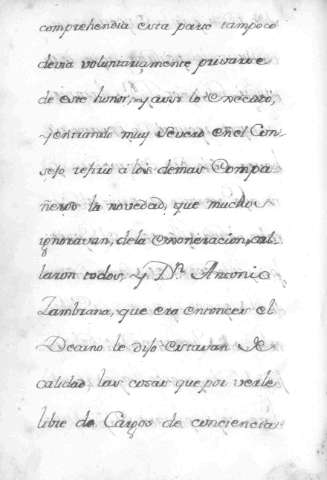 comprehendia esta parte tampoco
devia voluntariamente privarse
de este honor, y assi lo executó,
y entrando muy severo en el Con-
sejo refirió á los demas Compa
ñeros la novedad, que muchos
ignoravan, dela exoneracion, cal-
laron todos, y Dn. Antonio
Zambrana, que era entonces el
Decano le dijo estavan de
calidad las cosas que por verse
libre de Cargos de conciencia